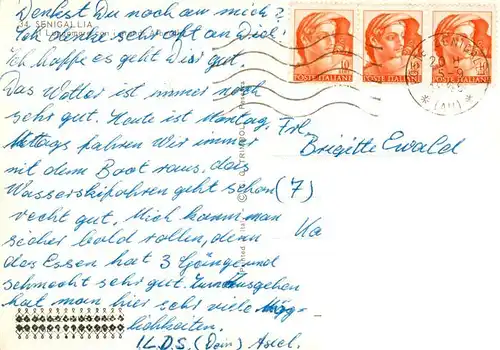 Denkst Du noch am mich?
14 SENIGALLIA
Ich denke sehr oft an Dich!
Ich hoffe es geht Dir gut.
Das Wetter ist immer noch
sehr gut. Heute ist Montag,
Mittags fahren Wir immer
mit dem Boot raus, das
Wasserskifahren geht schon
recht gut. Mich kann man
sicher bald rollen, denn
das Essen hat 3 Gänge und
schmeckt sehr gut. Zum Ausgehen
hat man hier sehr viele Mög-
lichkeiten.
I.L.D.S. (Dein) Axel.
Frl.
Brigitte Ewald
(7)
10
POSTE ITALIANE
POSTE ITALIANE
POSTE ITALIANE
SENIGALLIA
(AN)
Printed in Italy